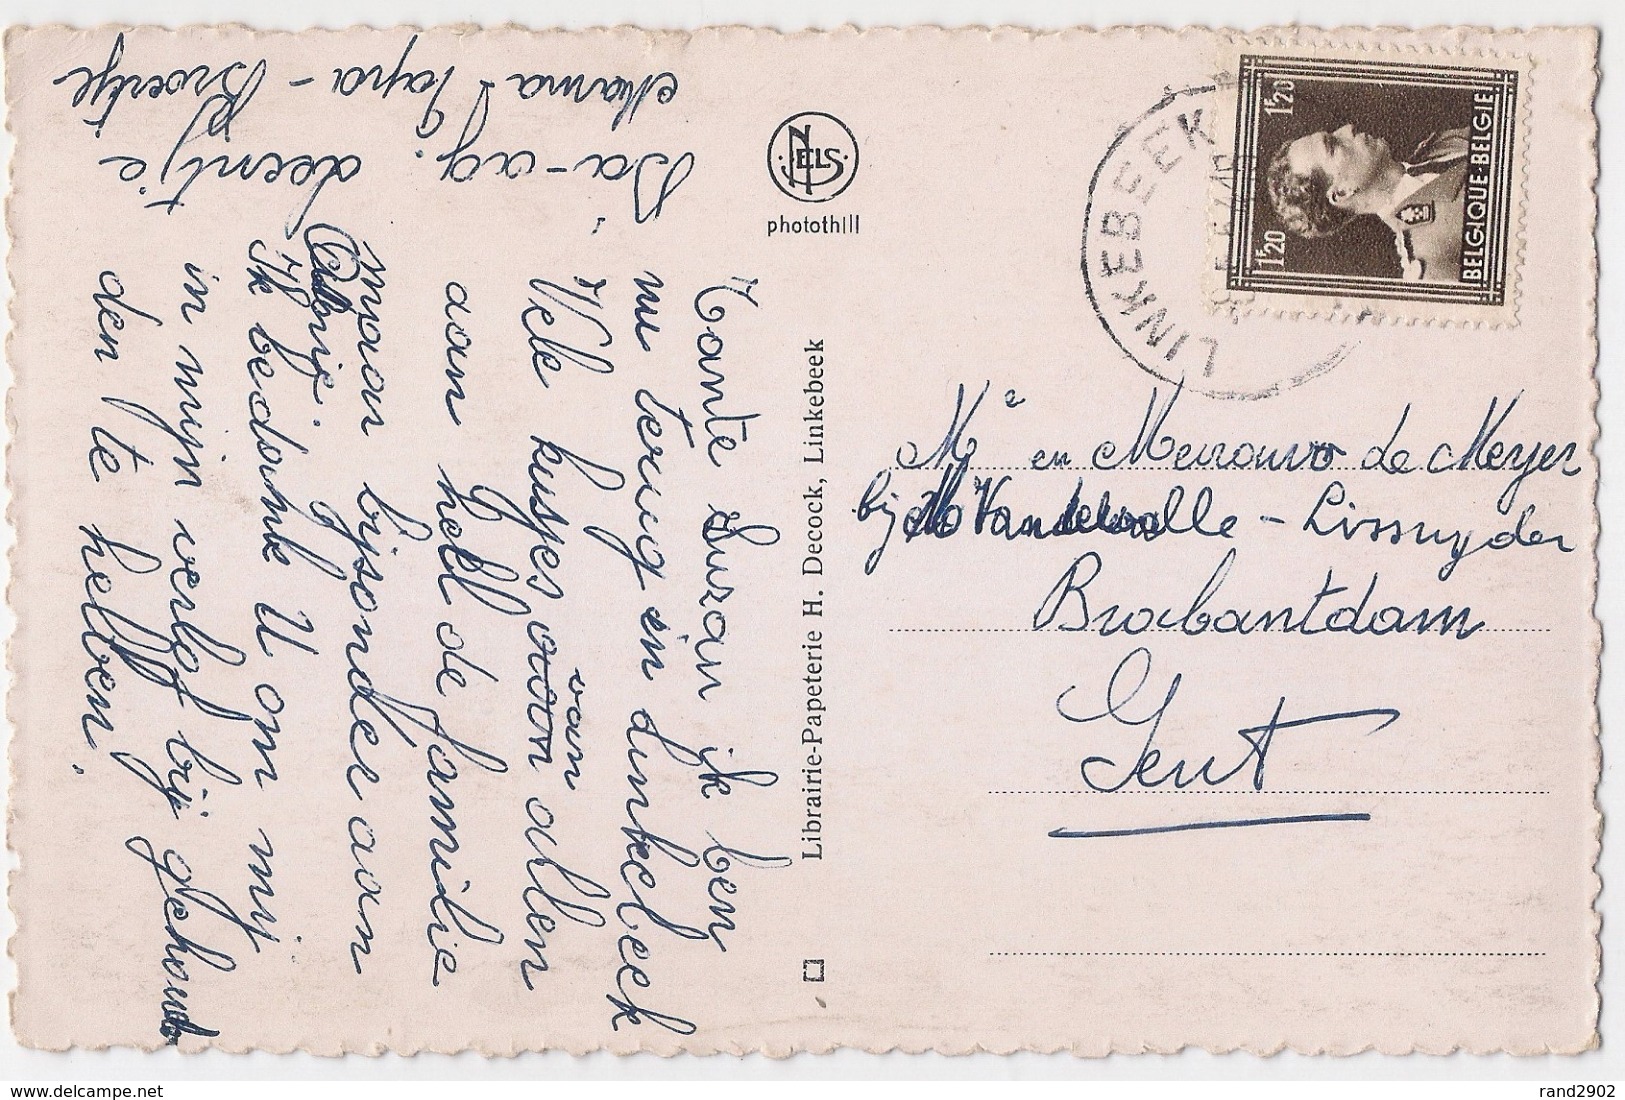 Tante Suzan ik ben
nu terug in Linkebeek
Vele kusjes van allen
aan heel de familie
en bijzonder aan
Ik bedank U om mij
in mijn verlof bij gehou
den te hebben.
Da-ag.
deentje
Mama - Papa - Broertje
NELS
photothill
Librairie-Papeterie H. Decock, Linkebeek
LINKEBEEK
1F20
1F20
BELGIQUE·BELGIË
Mr en Mevrouw De Meyer
bij Vandewalle - Lissnyder
Brabantdam
Gent
rand2902